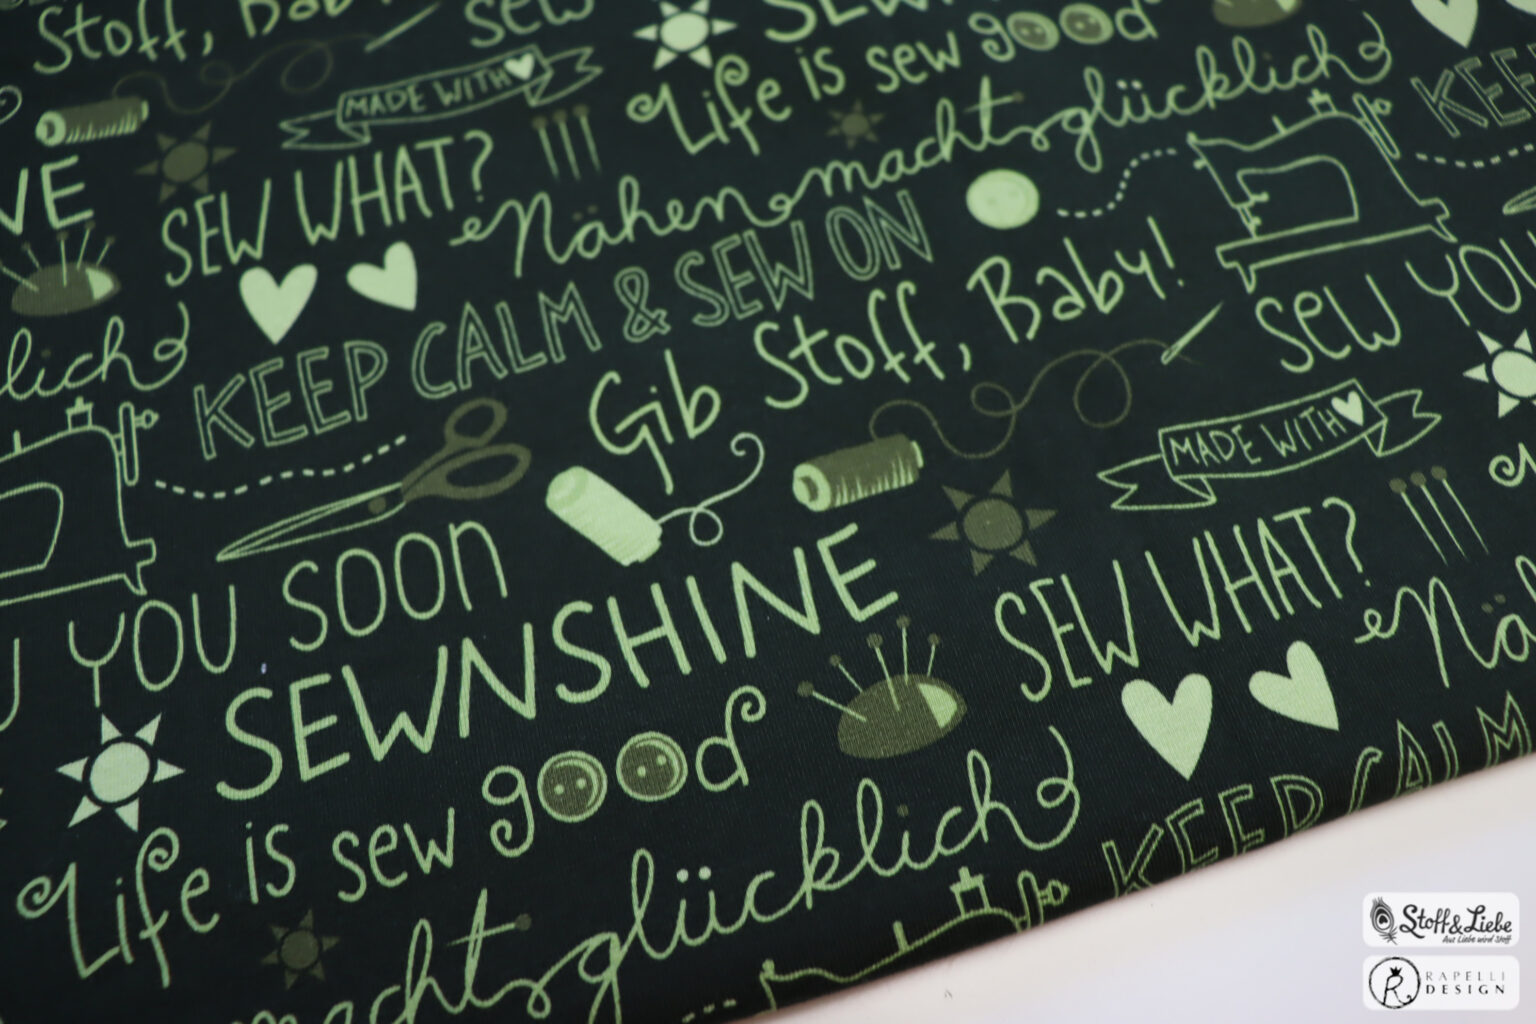 Stoff, Bab
SEW
SEWN
MADE WITH
Life is sew good
KEE
VE
SEW WHAT?
Nähen macht glücklich
lich
KEEP CALM & SEW ON
Gib Stoff, Baby!
SEW YOU
MADE WITH
U YOU SOON
SEWNSHINE
SEW WHAT?
Nä
Life is sew good
KEEP CALM
macht glücklich
Stoff & Liebe
Aus Liebe wird Stoff
RAPELLI
DESIGN